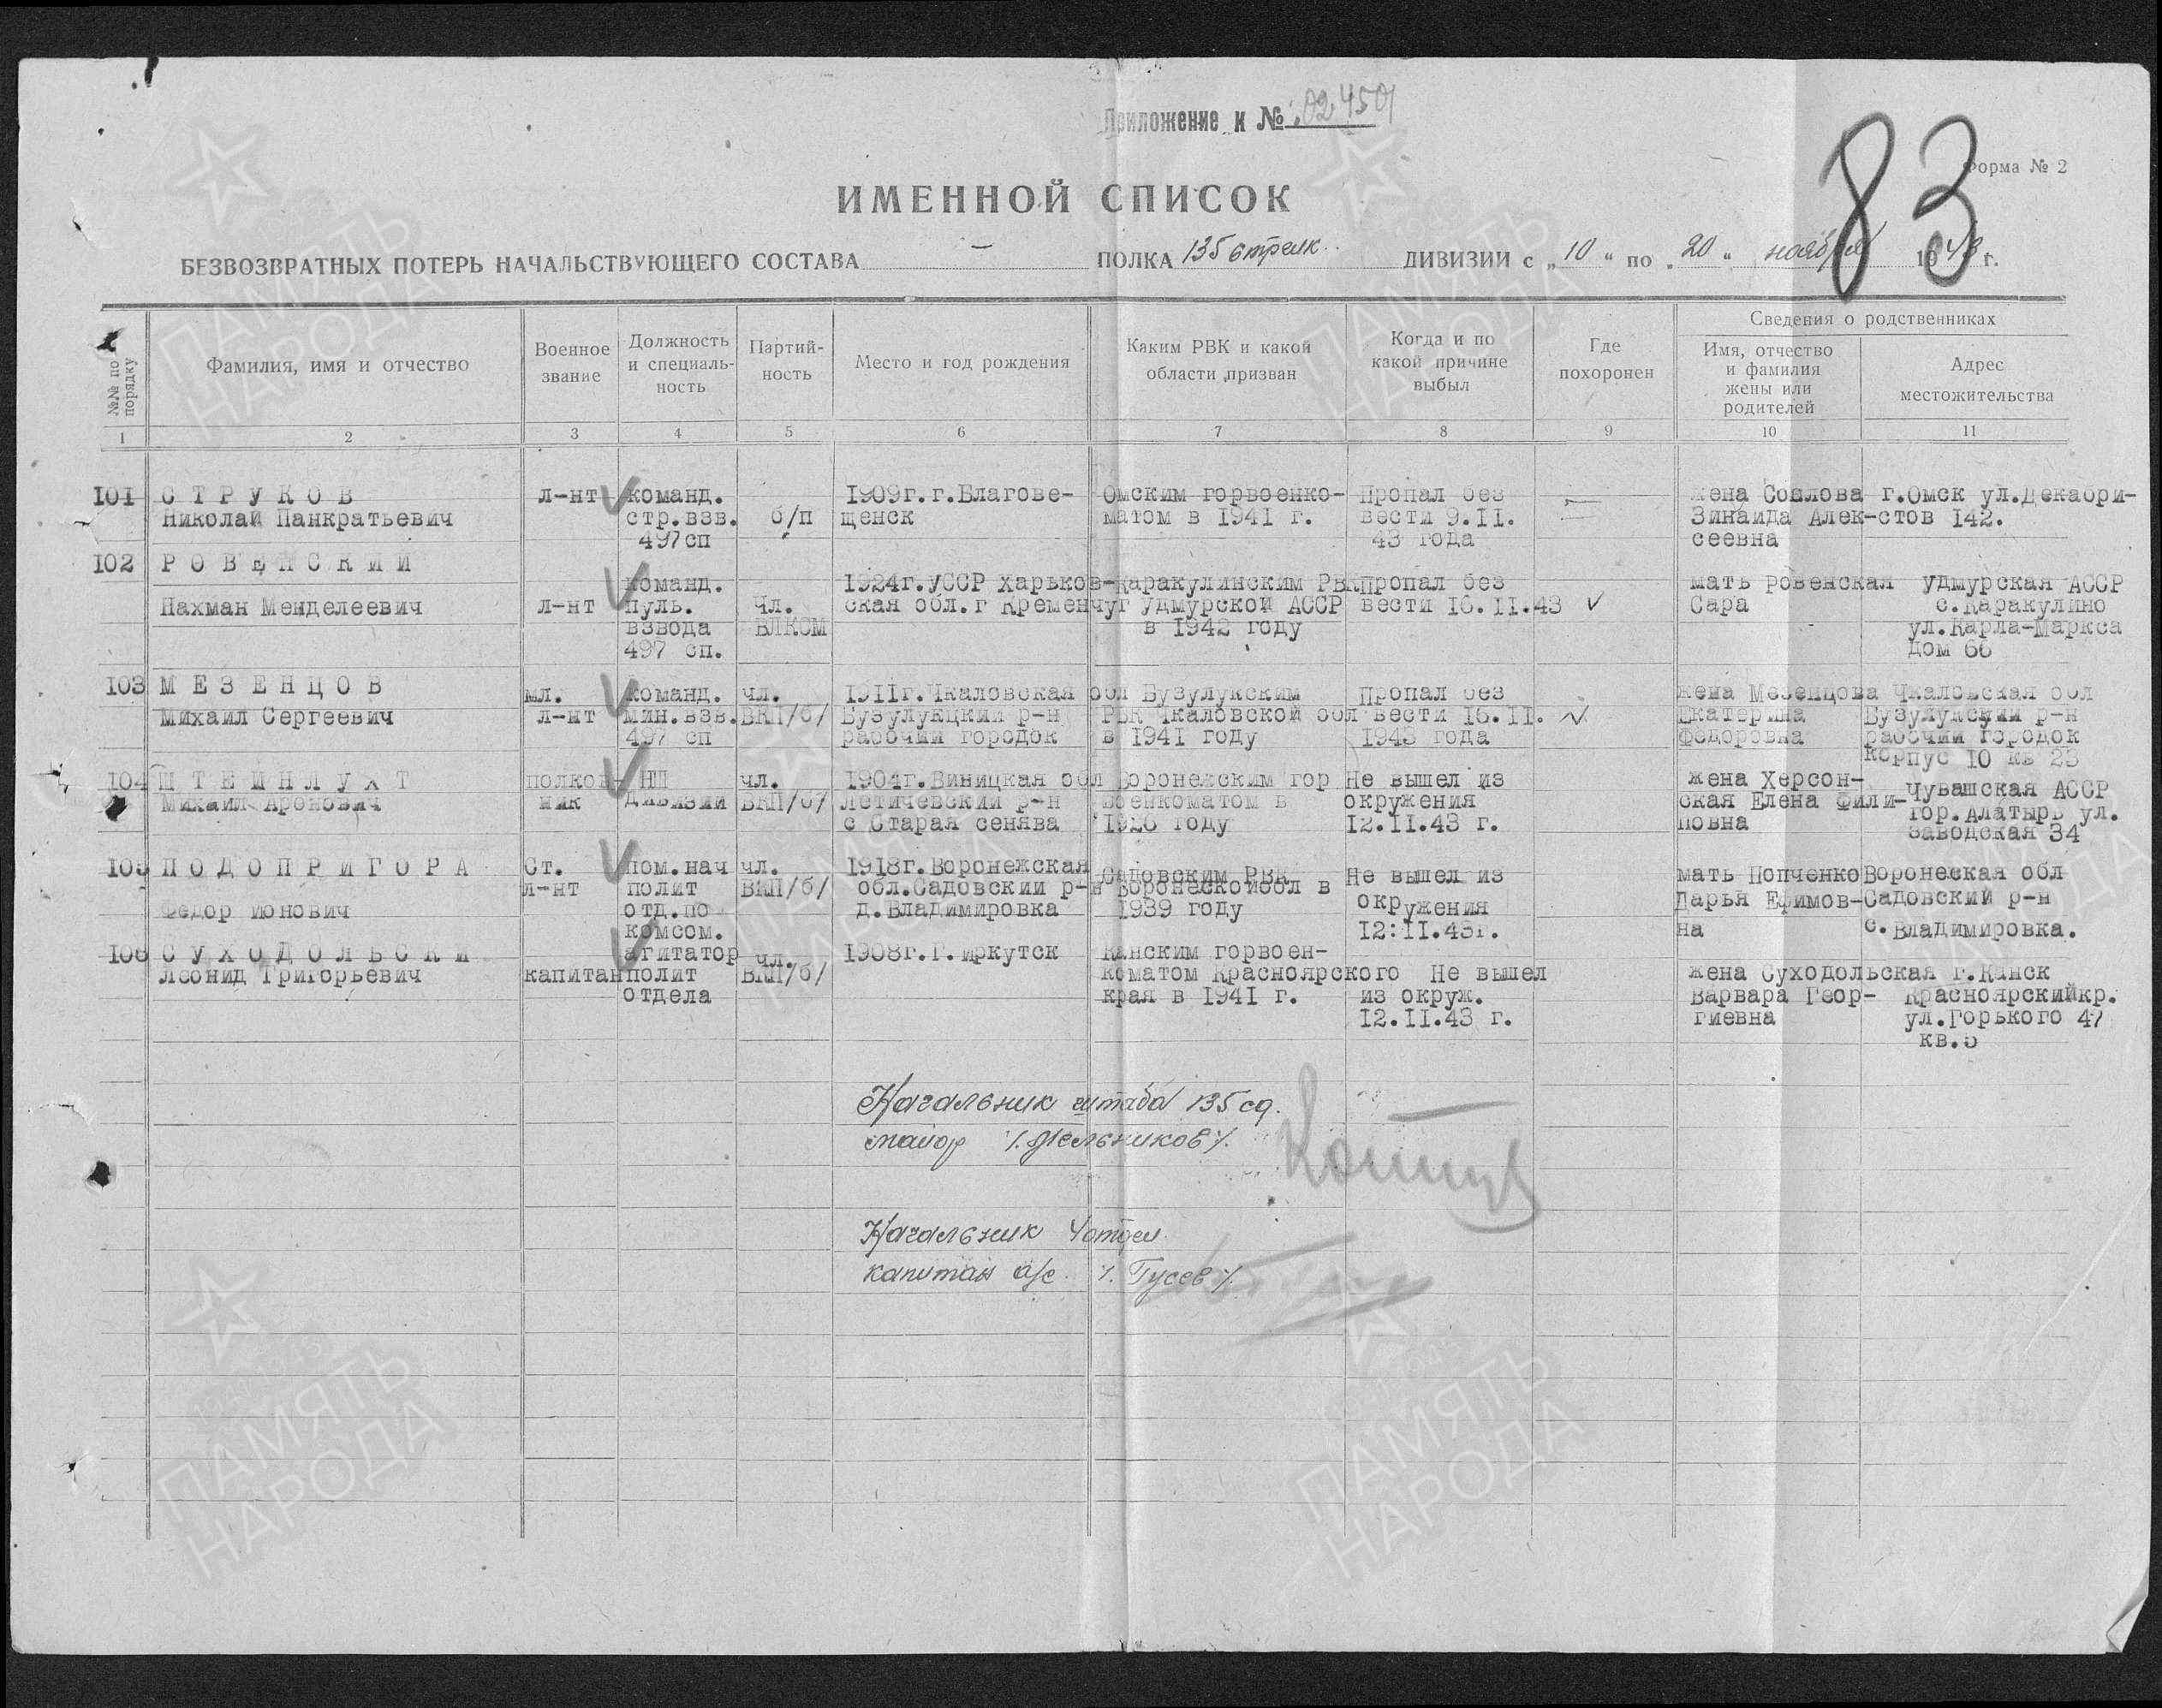 Приложение к № 02450
83
Форма № 2
ИМЕННОЙ СПИСОК
БЕЗВОЗВРАТНЫХ ПОТЕРЬ НАЧАЛЬСТВУЮЩЕГО СОСТАВА – ПОЛКА 135 стрелк. ДИВИЗИИ с „10“ по „20“ ноября 1943 г.
№№ по порядку
Фамилия, имя и отчество
Военное звание
Должность и специальность
Партийность
Место и год рождения
Каким РВК и какой области призван
Когда и по какой причине выбыл
Где похоронен
Сведения о родственниках
Имя, отчество и фамилия жены или родителей
Адрес местожительства
1 2 3 4 5 6 7 8 9 10 11
101 СТРУКОВ л-нт команд. 1909г. г.Благове- Омским горвоенко- Пропал без жена г.Омск ул.Декабри-
Николай Панкратьевич стр.взв. б/п щенск матом в 1941 г. вести 9.11. Зинаида Алек- стов 142.
497сп 43 года сеевна
102 РОВЕНСКИЙ
команд. 1924г.УССР Харьков- Каракулинским РВК Пропал без мать Ровенская Удмурская АССР
Нахман Менделеевич л-нт пуль. Чл. ская обл.г Кременчуг Удмурской АССР вести 16.11.43 Сара с.Каракулино
взвода ВЛКСМ в 1942 году ул.Карла-Маркса
497 сп. дом 66
103 МЕЗЕНЦОВ мл. команд. чл. 1911г.Чкаловская обл Бузулукским Пропал без жена Мезенцова Чкаловская обл
Михаил Сергеевич л-нт мин.взв. ВКП/б/ Бузулукцкий р-н РВК Чкаловской обл вести 16.11. Екатерина Бузулукский р-н
497 сп рабочий городок в 1941 году 1943 года Федоровна рабочий городок
корпус 10 кв 23
104 ШТЕЙНЛУХТ полков- НШ чл. 1904г.Виницкая обл Воронежским гор Не вышел из жена Херсон- Чувашская АССР
Михаил Аронович ник дивизии ВКП/б/ Летичевский р-н военкоматом в окружения ская Елена Фили- гор.Алатырь ул.
с Старая сенява 1926 году 12.11.43 г. повна Заводская 34
105 ПОДОПРИГОРА Ст. пом.нач чл. 1918г.Воронежская Садовским РВК Не вышел из мать Попченко Воронеская обл
л-нт полит ВКП/б/ обл.Садовский р-н Воронескойобл в Дарья Ефимов- Садовский р-н
Федор Ионович отд.по д.Владимировка 1939 году окружения на с.Владимировка.
комсом. 12:11.43г.
106 СУХОДОЛЬСКИ агитатор чл. 1908г.Г.Иркутск Канским горвоен-
Леонид Григорьевич капитан полит ВКП/б/ коматом Красноярского Не вышел жена Суходольская г.Канск
отдела края в 1941 г. из окруж. Варвара Геор- Красноярскийкр.
12.11.43 г. гиевна ул.Горького 47
кв.5
Начальник штаба 135 сд.
майор /.Мельников/.
Начальник 4 отдел
капитан а/с. /. Гусев /.
ПАМЯТЬ НАРОДА